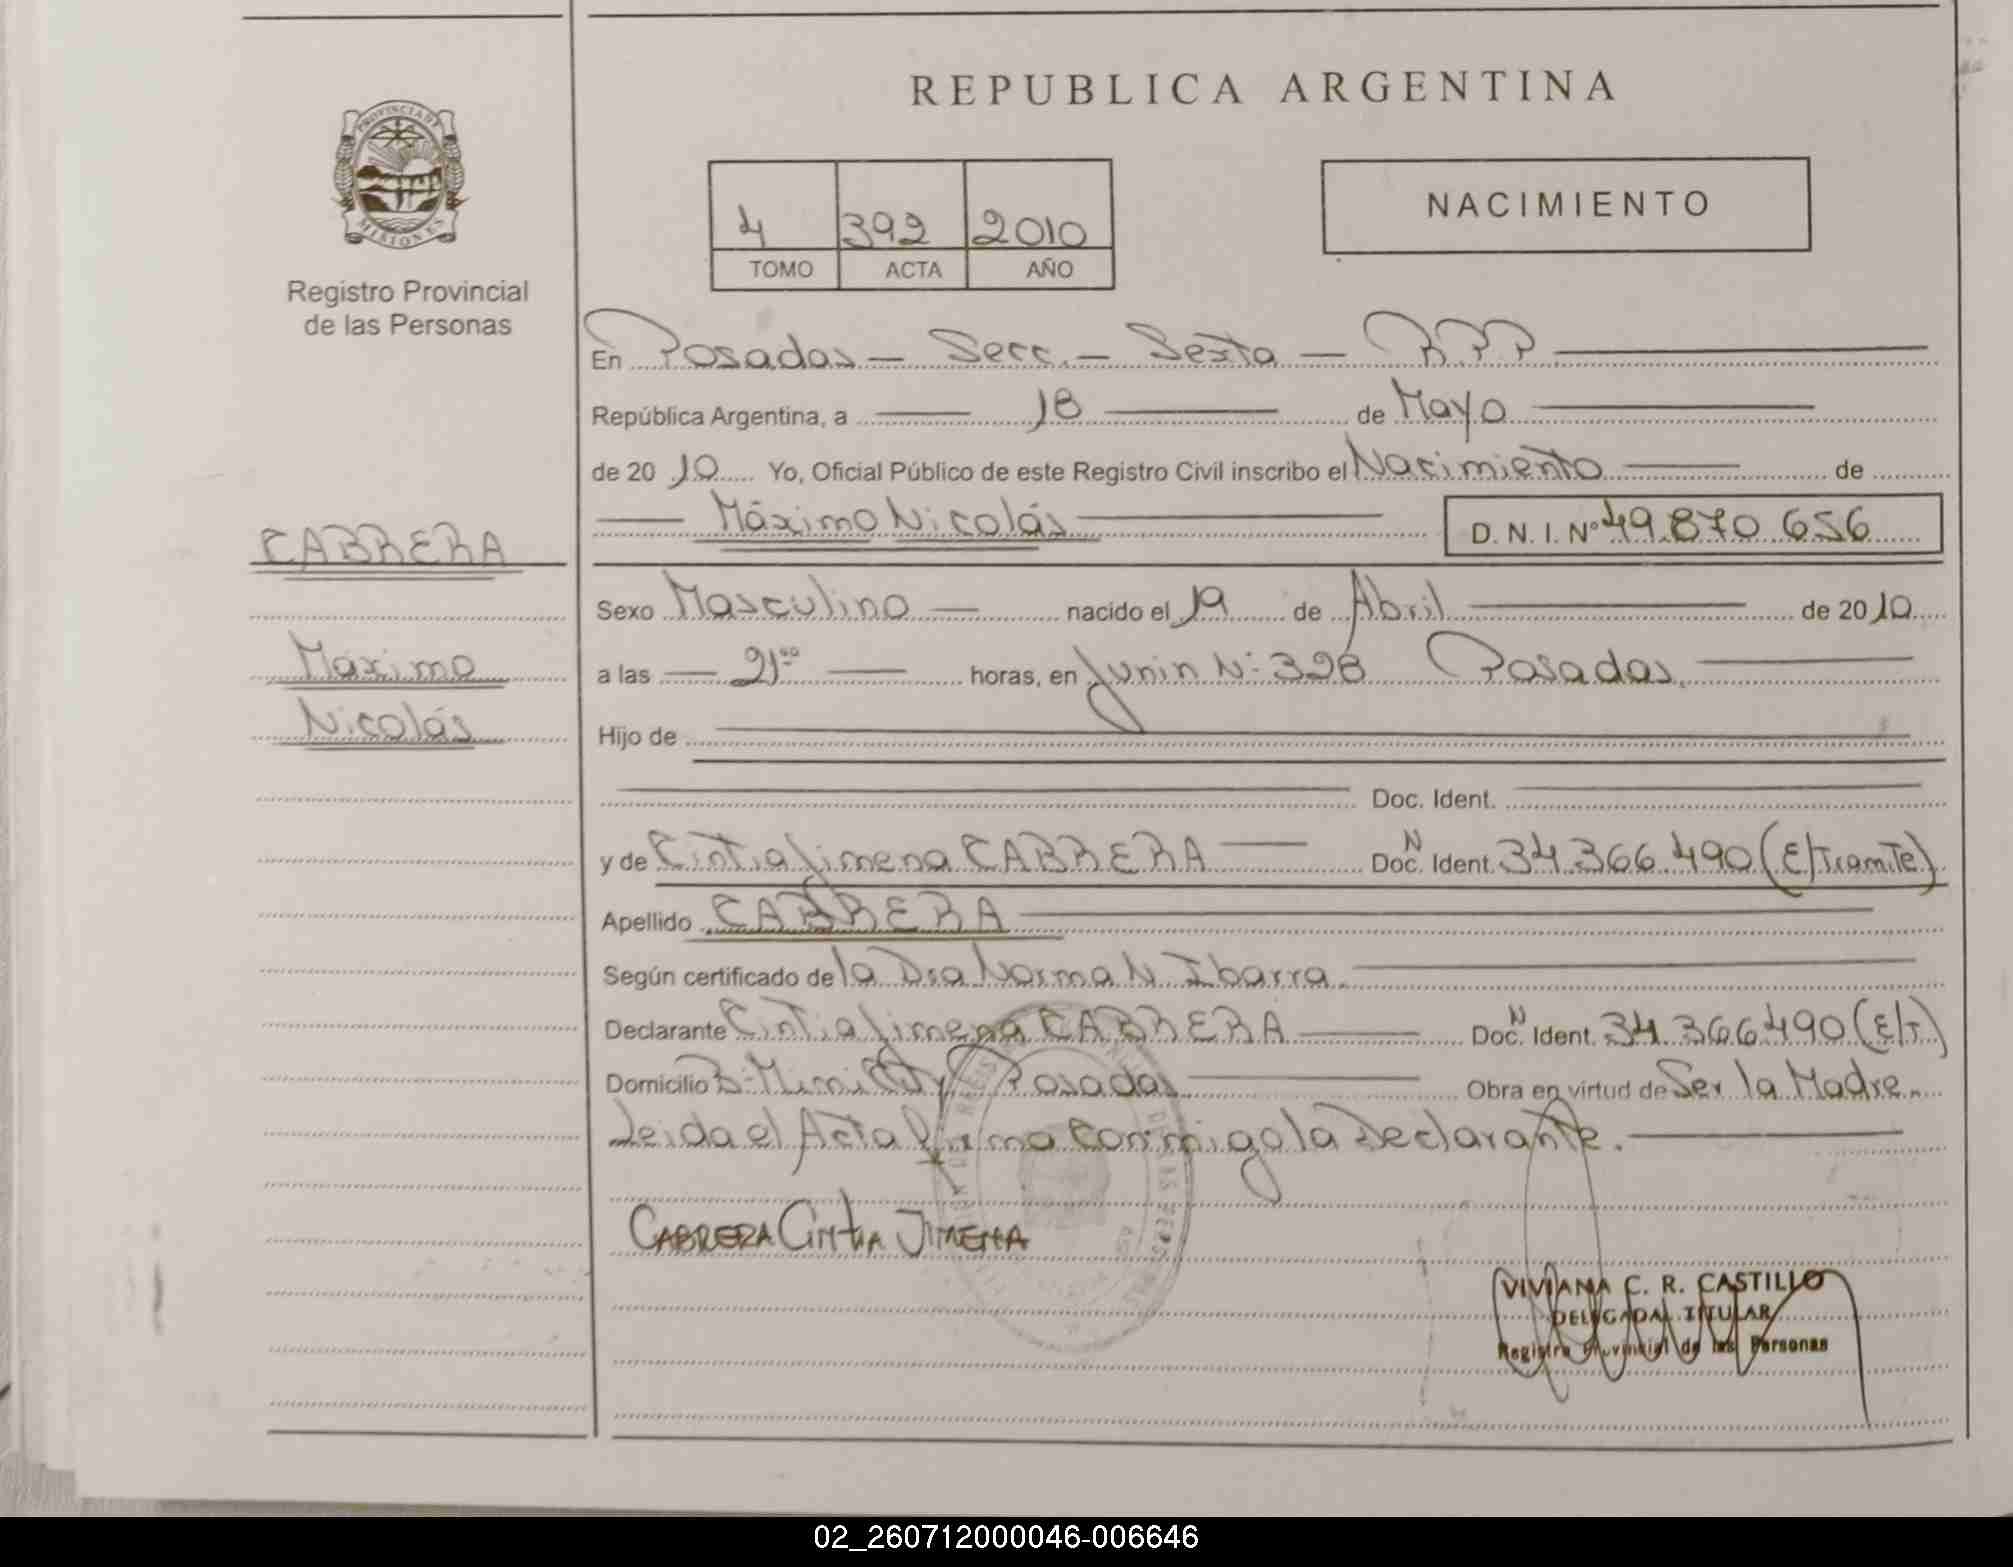 REPUBLICA ARGENTINA
PROVINCIA DE MISIONES
Registro Provincial
de las Personas
4 392 2010
TOMO ACTA AÑO
NACIMIENTO
En Posadas - Secc. - Sexta - RPP
República Argentina, a 18 de Mayo
de 2010 Yo, Oficial Público de este Registro Civil inscribo el Nacimiento de
Máximo Nicolás D. N. I. Nº 49.870.656
CABRERA
Máximo
Nicolás
Sexo Masculino nacido el 19 de Abril de 2010
a las 21ºº horas, en Junin Nº 328 Posadas.
Hijo de
Doc. Ident.
y de Cintia Jimena CABRERA Doc. N Ident. 34.366.490 (E/Tramite)
Apellido CABRERA
Según certificado de la Dra Norma N. Ibarra.
Declarante Cintia Jimena CABRERA Doc. N Ident. 34.366.490 (E/T)
Domicilio Posadas Obra en virtud de Ser la Madre.
Leida el Acta firma conmigo la Declarante.
CABRERA CINTIA JIMENA
VIVIANA C. R. CASTILLO
DELEGADA TITULAR
Registro Provincial de las Personas
02_260712000046-006646